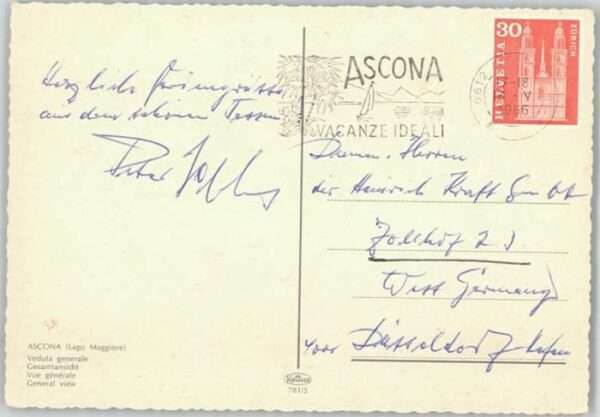 30
HELVETIA
ZÜRICH
ASCONA
VACANZE IDEALI
6612
-18
V
1966
Herzliche Feriengrüsse
aus dem schönen Tessin
Peter
Damen + Herren
der Heinrich Kraft GmbH
Zollhof 23
West Germany
4000 Düsseldorf Hafen
ASCONA (Lago Maggiore)
Veduta generale
Gesamtansicht
Vue générale
General view
781/5